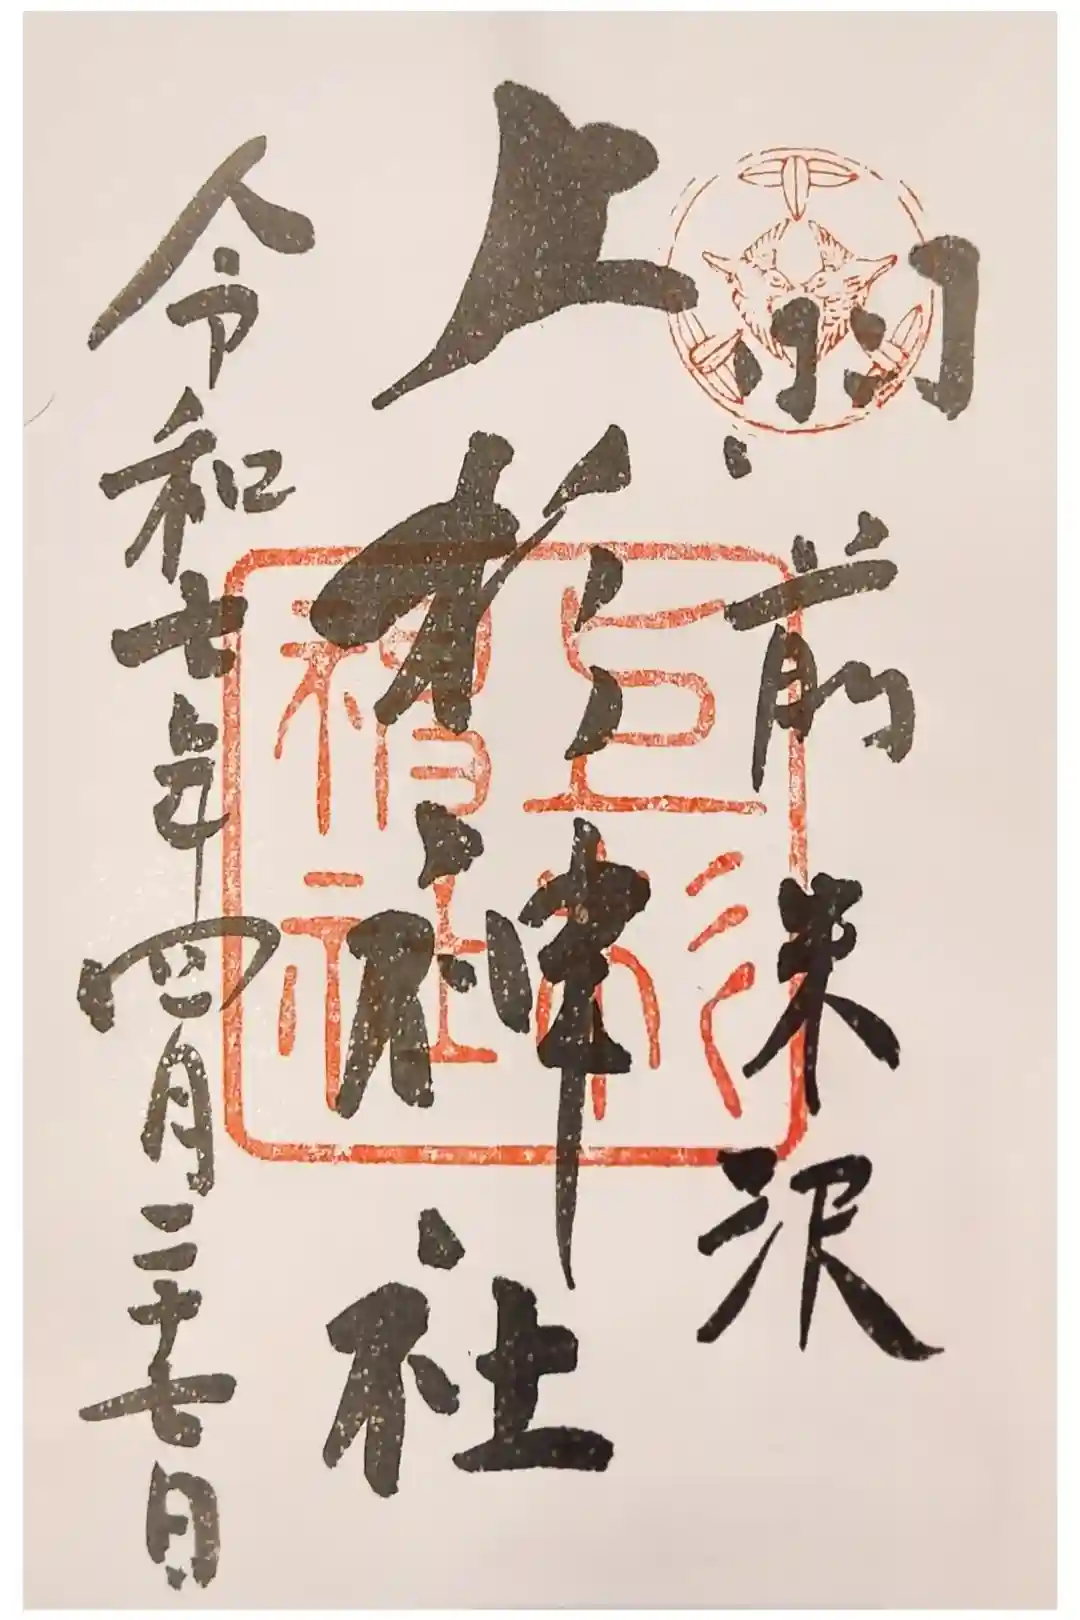 羽前米沢
上杉神社
令和七年四月二十七日
上杉
神社